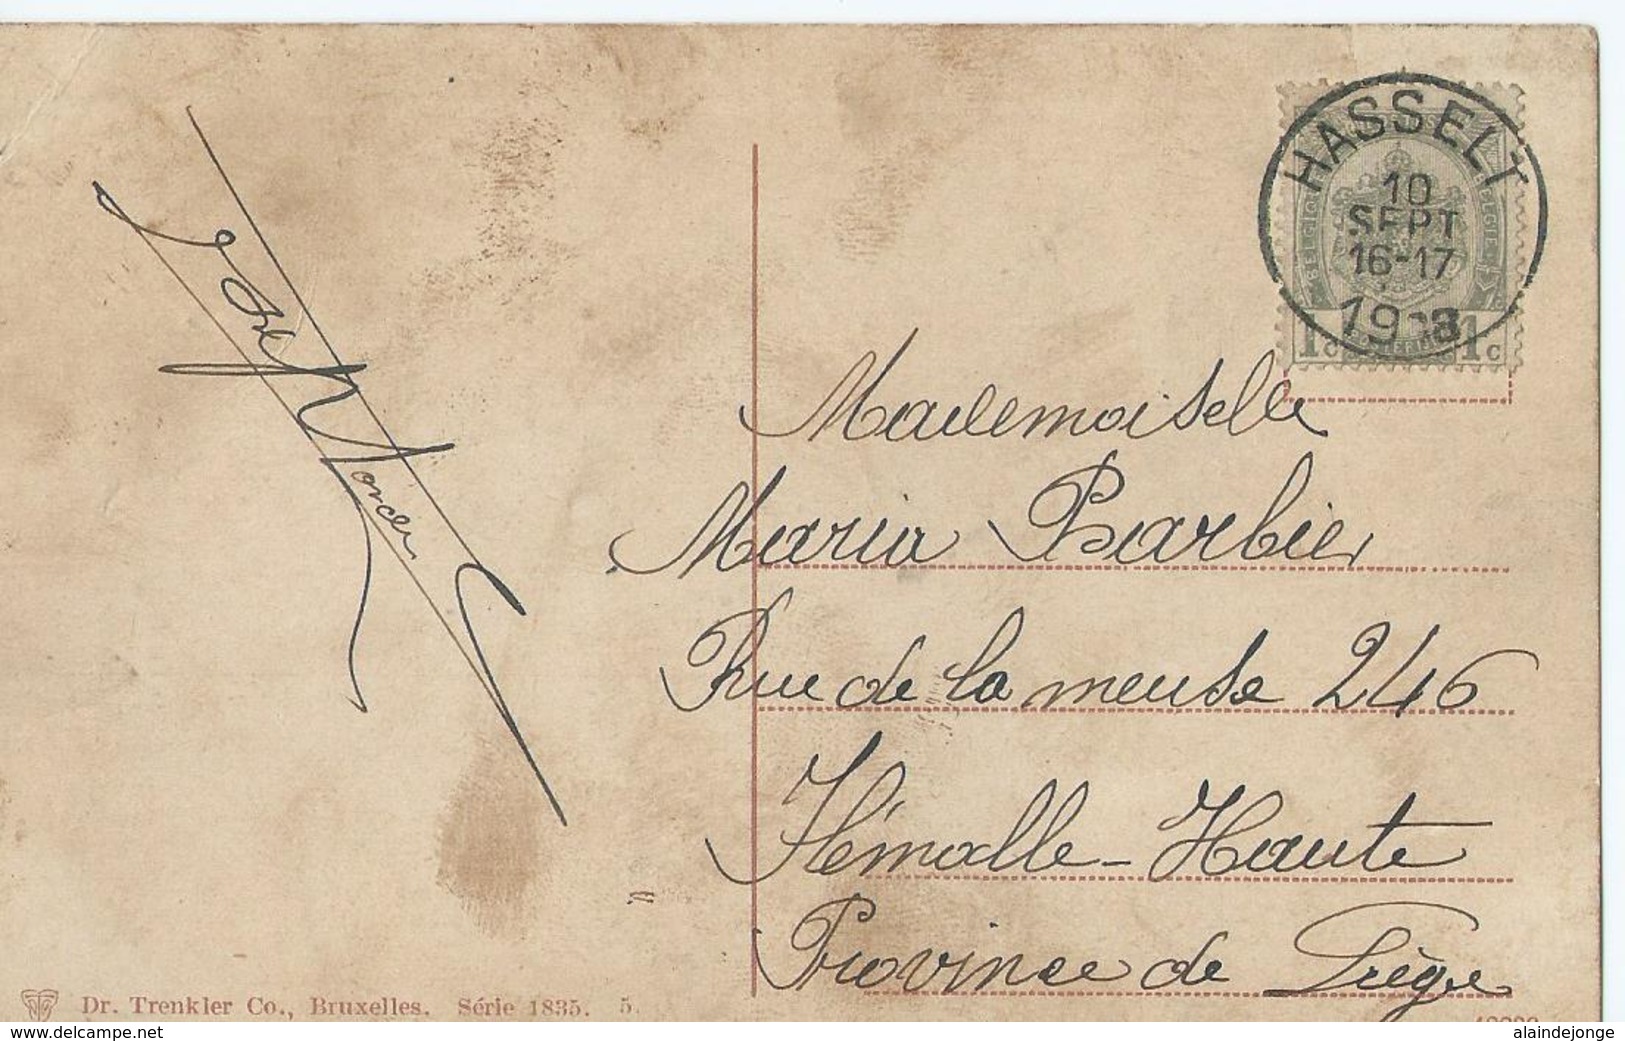 HASSELT
10
SEPT
16-17
1908
BELGIQUE
BELGIE
1c 1c
Mademoiselle
Maria Barbier
Rue de la meuse 246
Flémalle-Haute
Province de Liège
Dr. Trenkler Co., Bruxelles. Série 1835. 5.
delcampe.net
alaindejonge